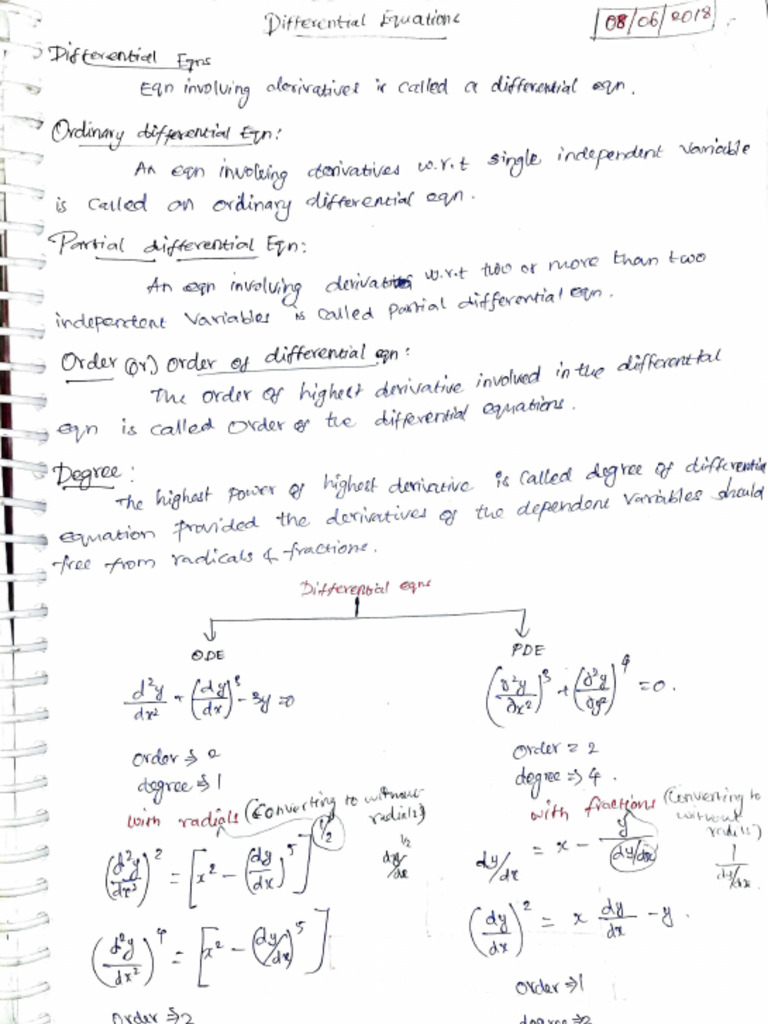 Differential Equations
08/06/2018
Differential Eqns
Eqn involving derivatives is called a differential eqn.
Ordinary differential Eqn:
An eqn involving derivatives w.r.t single independent variable
is called an ordinary differential eqn.
Partial differential Eqn:
An eqn involving derivatives w.r.t two or more than two
independent variables is called partial differential eqn.
Order (or) order of differential eqn:
The order of highest derivative involved in the differential
eqn is called order of the differential equations.
Degree:
The highest power of highest derivative is called degree of differential
equation provided the derivatives of the dependent variables should
free from radicals & fractions.
Differential eqns
ODE
PDE
d²y/dx² + (dy/dx)³ - 3y = 0
(∂²y/∂x²)³ + (∂²y/∂y²)⁴ = 0.
order ⇒ 2
order = 2
degree ⇒ 1
degree ⇒ 4.
with radials (Converting to without
radials)
with fractions (Converting to
without
radials)
(d²y/dx²)² = [x² - (dy/dx)⁵]^1/2
dy/dx ^1/2
dy/dx = x - y/(dy/dx)
1/(dy/dx)
(d²y/dx²)⁴ = [x² - (dy/dx)⁵]
(dy/dx)² = x dy/dx - y.
order ⇒ 1
Order ⇒ 2
degree ⇒ 2